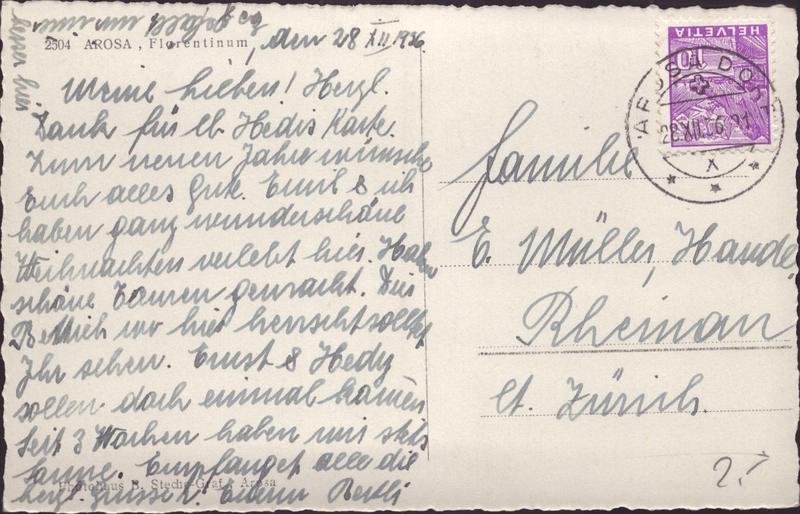 2504 AROSA, Florentinum, den 28 XII 1936
Meine Lieben! Herzl.
Dank für lb. Hedis Karte.
Zum neuen Jahre wünsche
Euch alles Gute. Emil & ich
haben ganz wunderschöne
Weihnachten verlebt hier. Haben
schöne Touren gemacht. Das
wo hier herrscht solltet
Ihr sehen. Ernst & Hedy
sollen doch einmal kommen
Seit 3 Wochen haben wir stets
Sonne. Empfanget alle die
herzl. Grüsse v. Eurem Bertli
Photohaus B. Steche-Graf, Arosa
HELVETIA
10
AROSA DORF
28.XII.36.21
X
Familie
E. Müller, Handl.
Rheinau
Ct. Zürich.
2.-